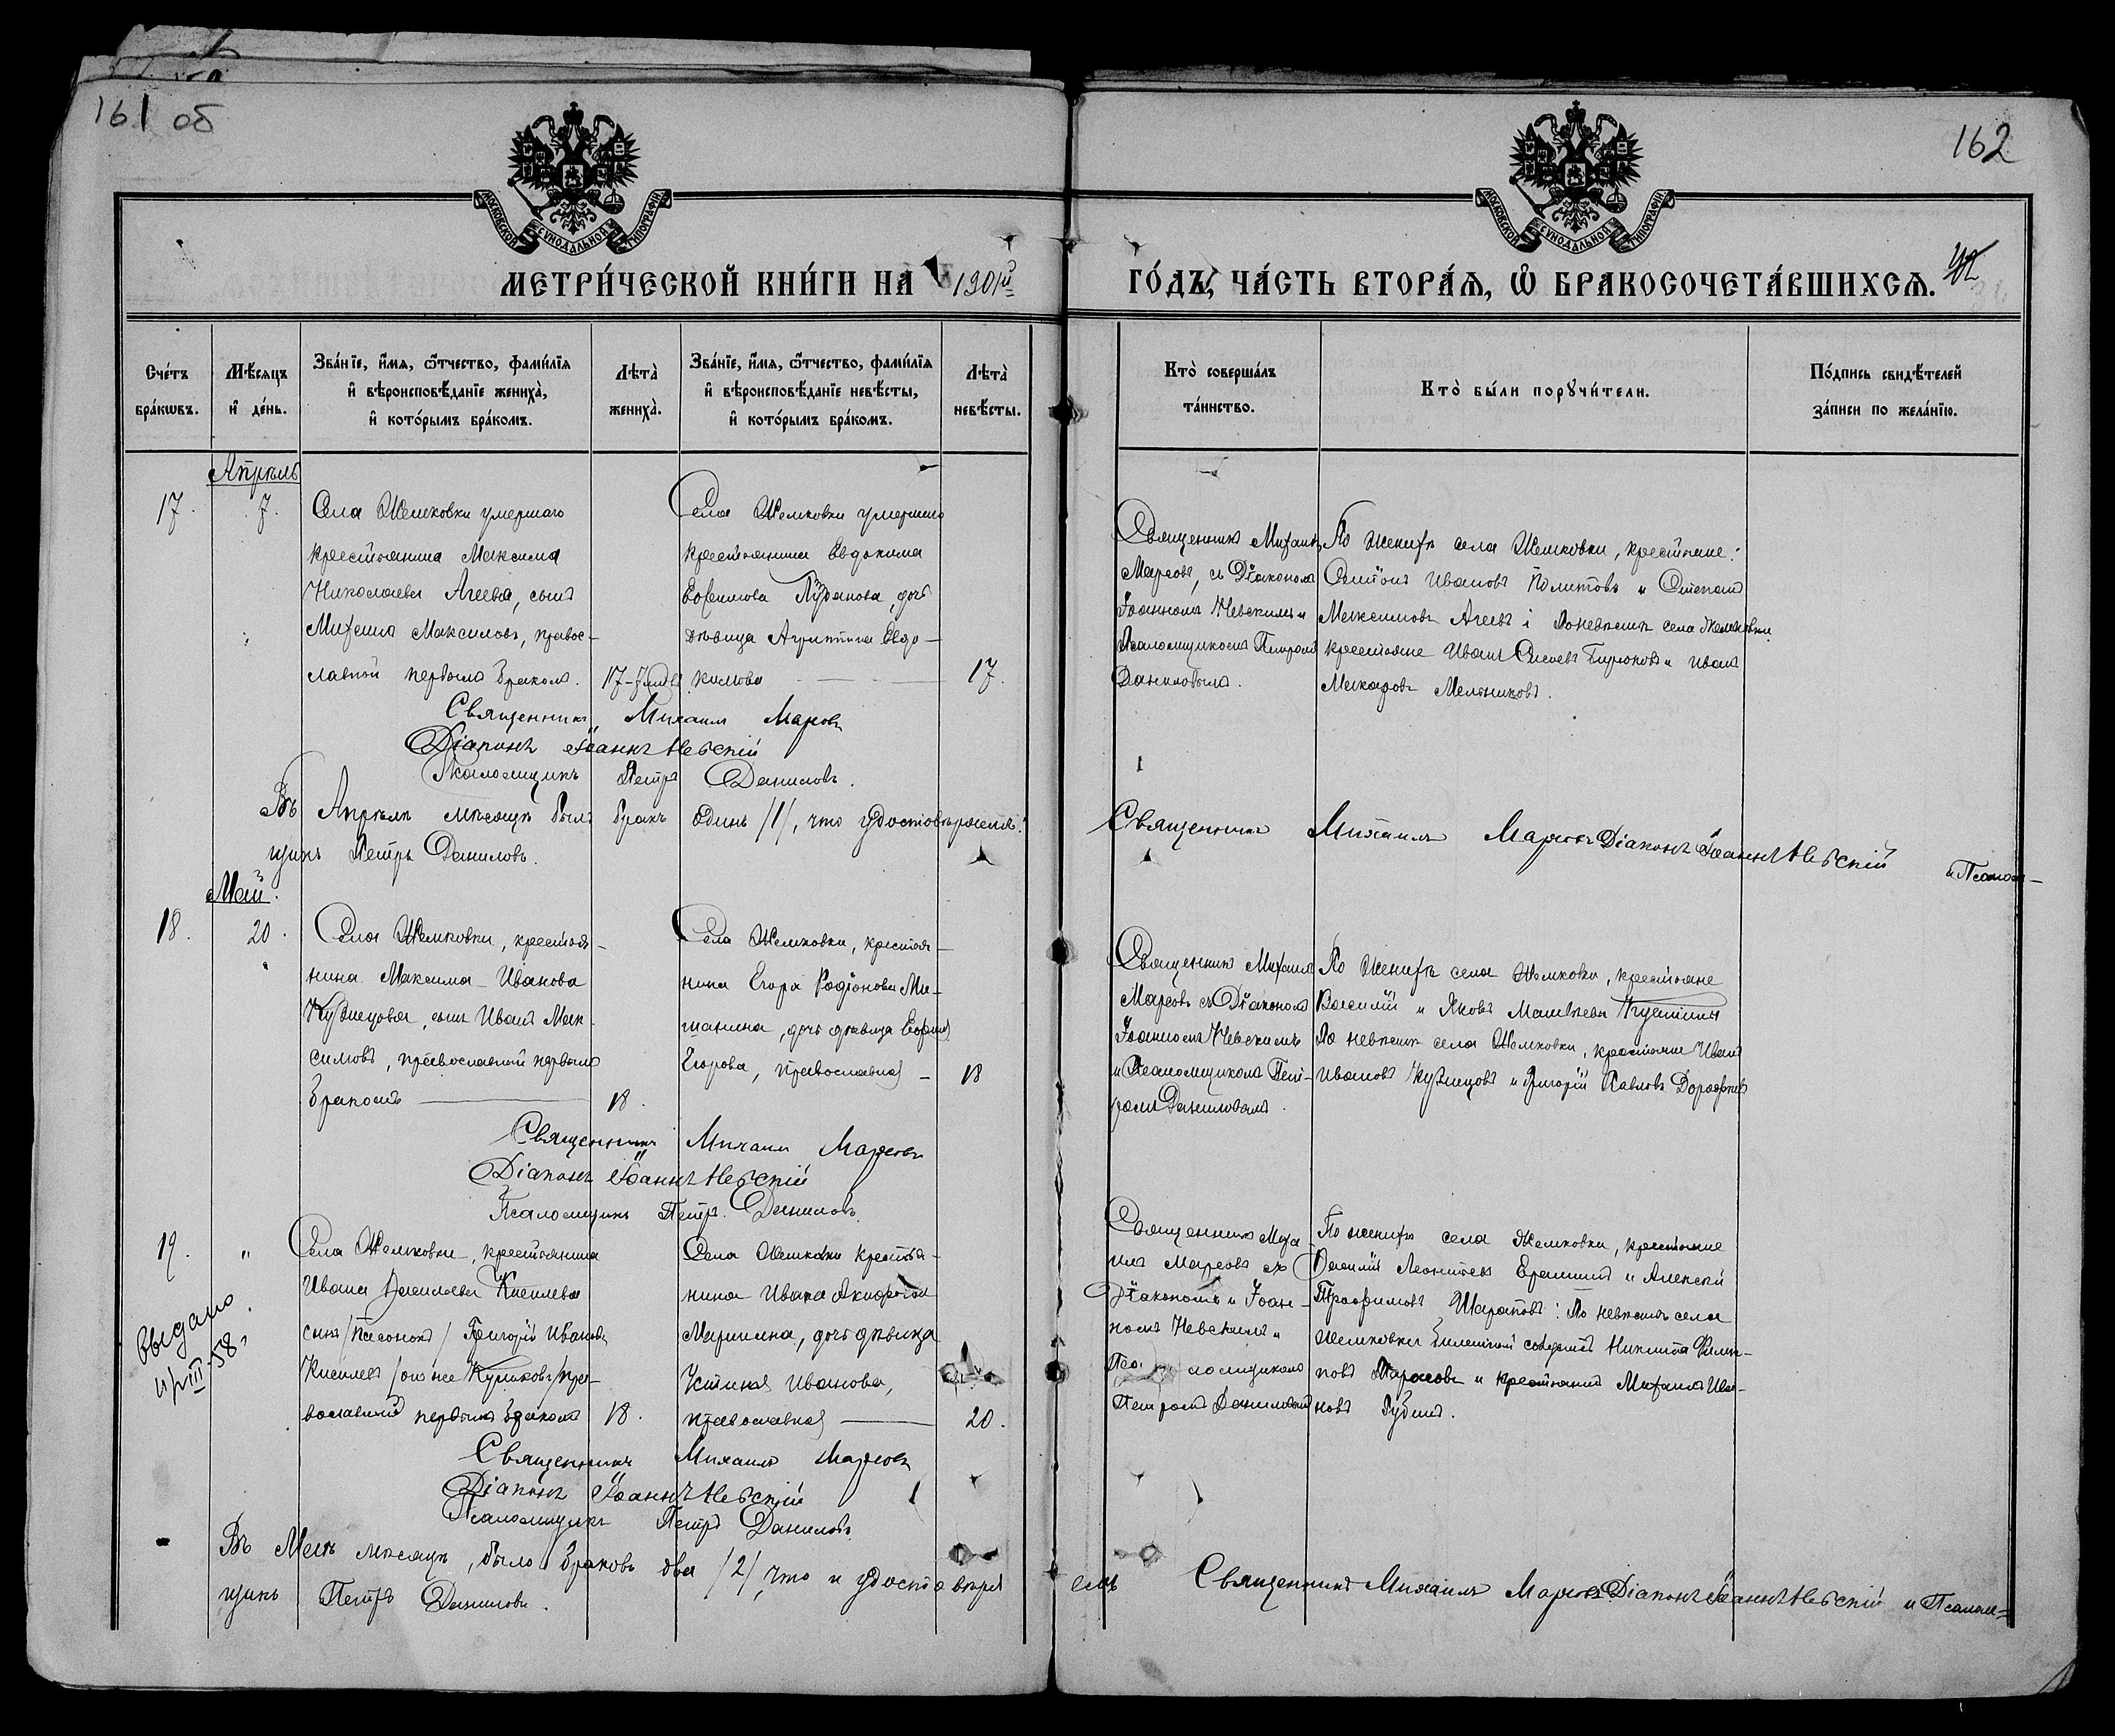 161 об
162
МОСКОВСКОЙ СУНОДАЛЬНОЙ ТИПОГРАФІИ
МОСКОВСКОЙ СУНОДАЛЬНОЙ ТИПОГРАФІИ
МЕТРИ́ЧЕСКОЙ КНИ́ГИ НА 1901й
ГО́ДЪ, ЧА́СТЬ ВТОРА́Ѧ, Ѽ БРАКОСОЧЕТА́ВШИХСѦ.
42
Сче́тъ бра́кѡвъ.
Мѣ́сѧцъ и҆ де́нь.
Зва́нїе, и҆́мѧ, ѻ҆́тчество, фами́лїѧ
и҆ вѣроисповѣ́данїе жениха̀,
и҆ кото́рымъ бра́комъ.
Лѣта̀ жениха̀.
Зва́нїе, и҆́мѧ, ѻ҆́тчество, фами́лїѧ
и҆ вѣроисповѣ́данїе невѣ́сты,
и҆ кото́рымъ бра́комъ.
Лѣта̀ невѣ́сты.
Кто̀ соверша́лъ
та́инство.
Кто̀ бы́ли порꙋчи́тели.
По́дпись свидѣ́телей
за́писи по жела́нїю.
Апрѣль
17.
7.
Села Жемковки умершаго
крестьянина Максима
Николаева Агеева, сынъ
Михаилъ Максимовъ, правос-
лавной первымъ бракомъ.
17-
Села Жемковки умершаго
крестьянина Евдокима
Ефимова дочь
дѣвица Агриппина Евдо-
кимова
17.
Священникъ Михаилъ
Марсовъ, съ Діакономъ
Іоанномъ Невскимъ и
Псаломщикомъ Петромъ
Даниловымъ.
По женихѣ села Жемковки, крестьяне:
Ивановъ и Степанъ
Максимовъ Агеевъ і По невѣстѣ села Жемковки
крестьяне Иванъ Бирюковъ и Иванъ
Макаровъ Мельниковъ.
Священникъ Михаилъ Марсовъ
Діаконъ Іоаннъ Невскій
Псаломщикъ Петръ Даниловъ.
Въ Апрѣлѣ мѣсяцѣ былъ бракъ одинъ /1/, что удостовѣряемъ: Священникъ Михаилъ Марсовъ Діаконъ Іоаннъ Невскій и Псалом-
щикъ Петръ Даниловъ.
Май.
18.
20.
Села Жемковки, крестья-
нина Максима Иванова
Кузнецова, сынъ Иванъ Мак-
симовъ, православной первымъ
бракомъ
18.
Села Жемковки, крестья-
нина Егора Родіонова Ми-
шанина, дочь дѣвица
Егорова, православная
18
Священникъ Михаилъ
Марсовъ съ Діакономъ
Іоанномъ Невскимъ
и Псаломщикомъ Пет-
ромъ Даниловымъ.
По женихѣ села Жемковки, крестьяне
Василій и Яковъ Матвѣевы
По невѣстѣ села Жемковки, крестьяне Иванъ
Ивановъ Кузнецовъ и Григорій Павловъ Дорофѣевъ
Священникъ Михаилъ Марсовъ
Діаконъ Іоаннъ Невскій
Псаломщикъ Петръ Даниловъ.
19.
"
Выдано
Села Жемковки, крестьянина
Ивана Васильева Киселева
сынъ /пасынокъ/ Григорій Ивановъ
Киселевъ /онъ же Куликовъ/ пра-
вославной первымъ бракомъ
18.
Села Жемковки крестья-
нина Ивана
дочь дѣвица
Устинія Иванова,
православная
20.
Священникъ Миха-
илъ Марсовъ съ
Діакономъ Іоан-
номъ Невскимъ и
Псаломщикомъ
Петромъ Даниловымъ
По женихѣ села Жемковки, крестьяне
Василій Леонтьевъ и Алексѣй
Трофимовъ Шараповъ: По невѣстѣ села
Жемковки билетный солдатъ Никита Филип-
повъ и крестьянинъ Михаилъ Ива-
новъ
Священникъ Михаилъ Марсовъ
Діаконъ Іоаннъ Невскій
Псаломщикъ Петръ Даниловъ
Въ Маѣ мѣсяцѣ, было браковъ два /2/, что и удостовѣряемъ Священникъ Михаилъ Марсовъ Діаконъ Іоаннъ Невскій и Псалом-
щикъ Петръ Даниловъ.